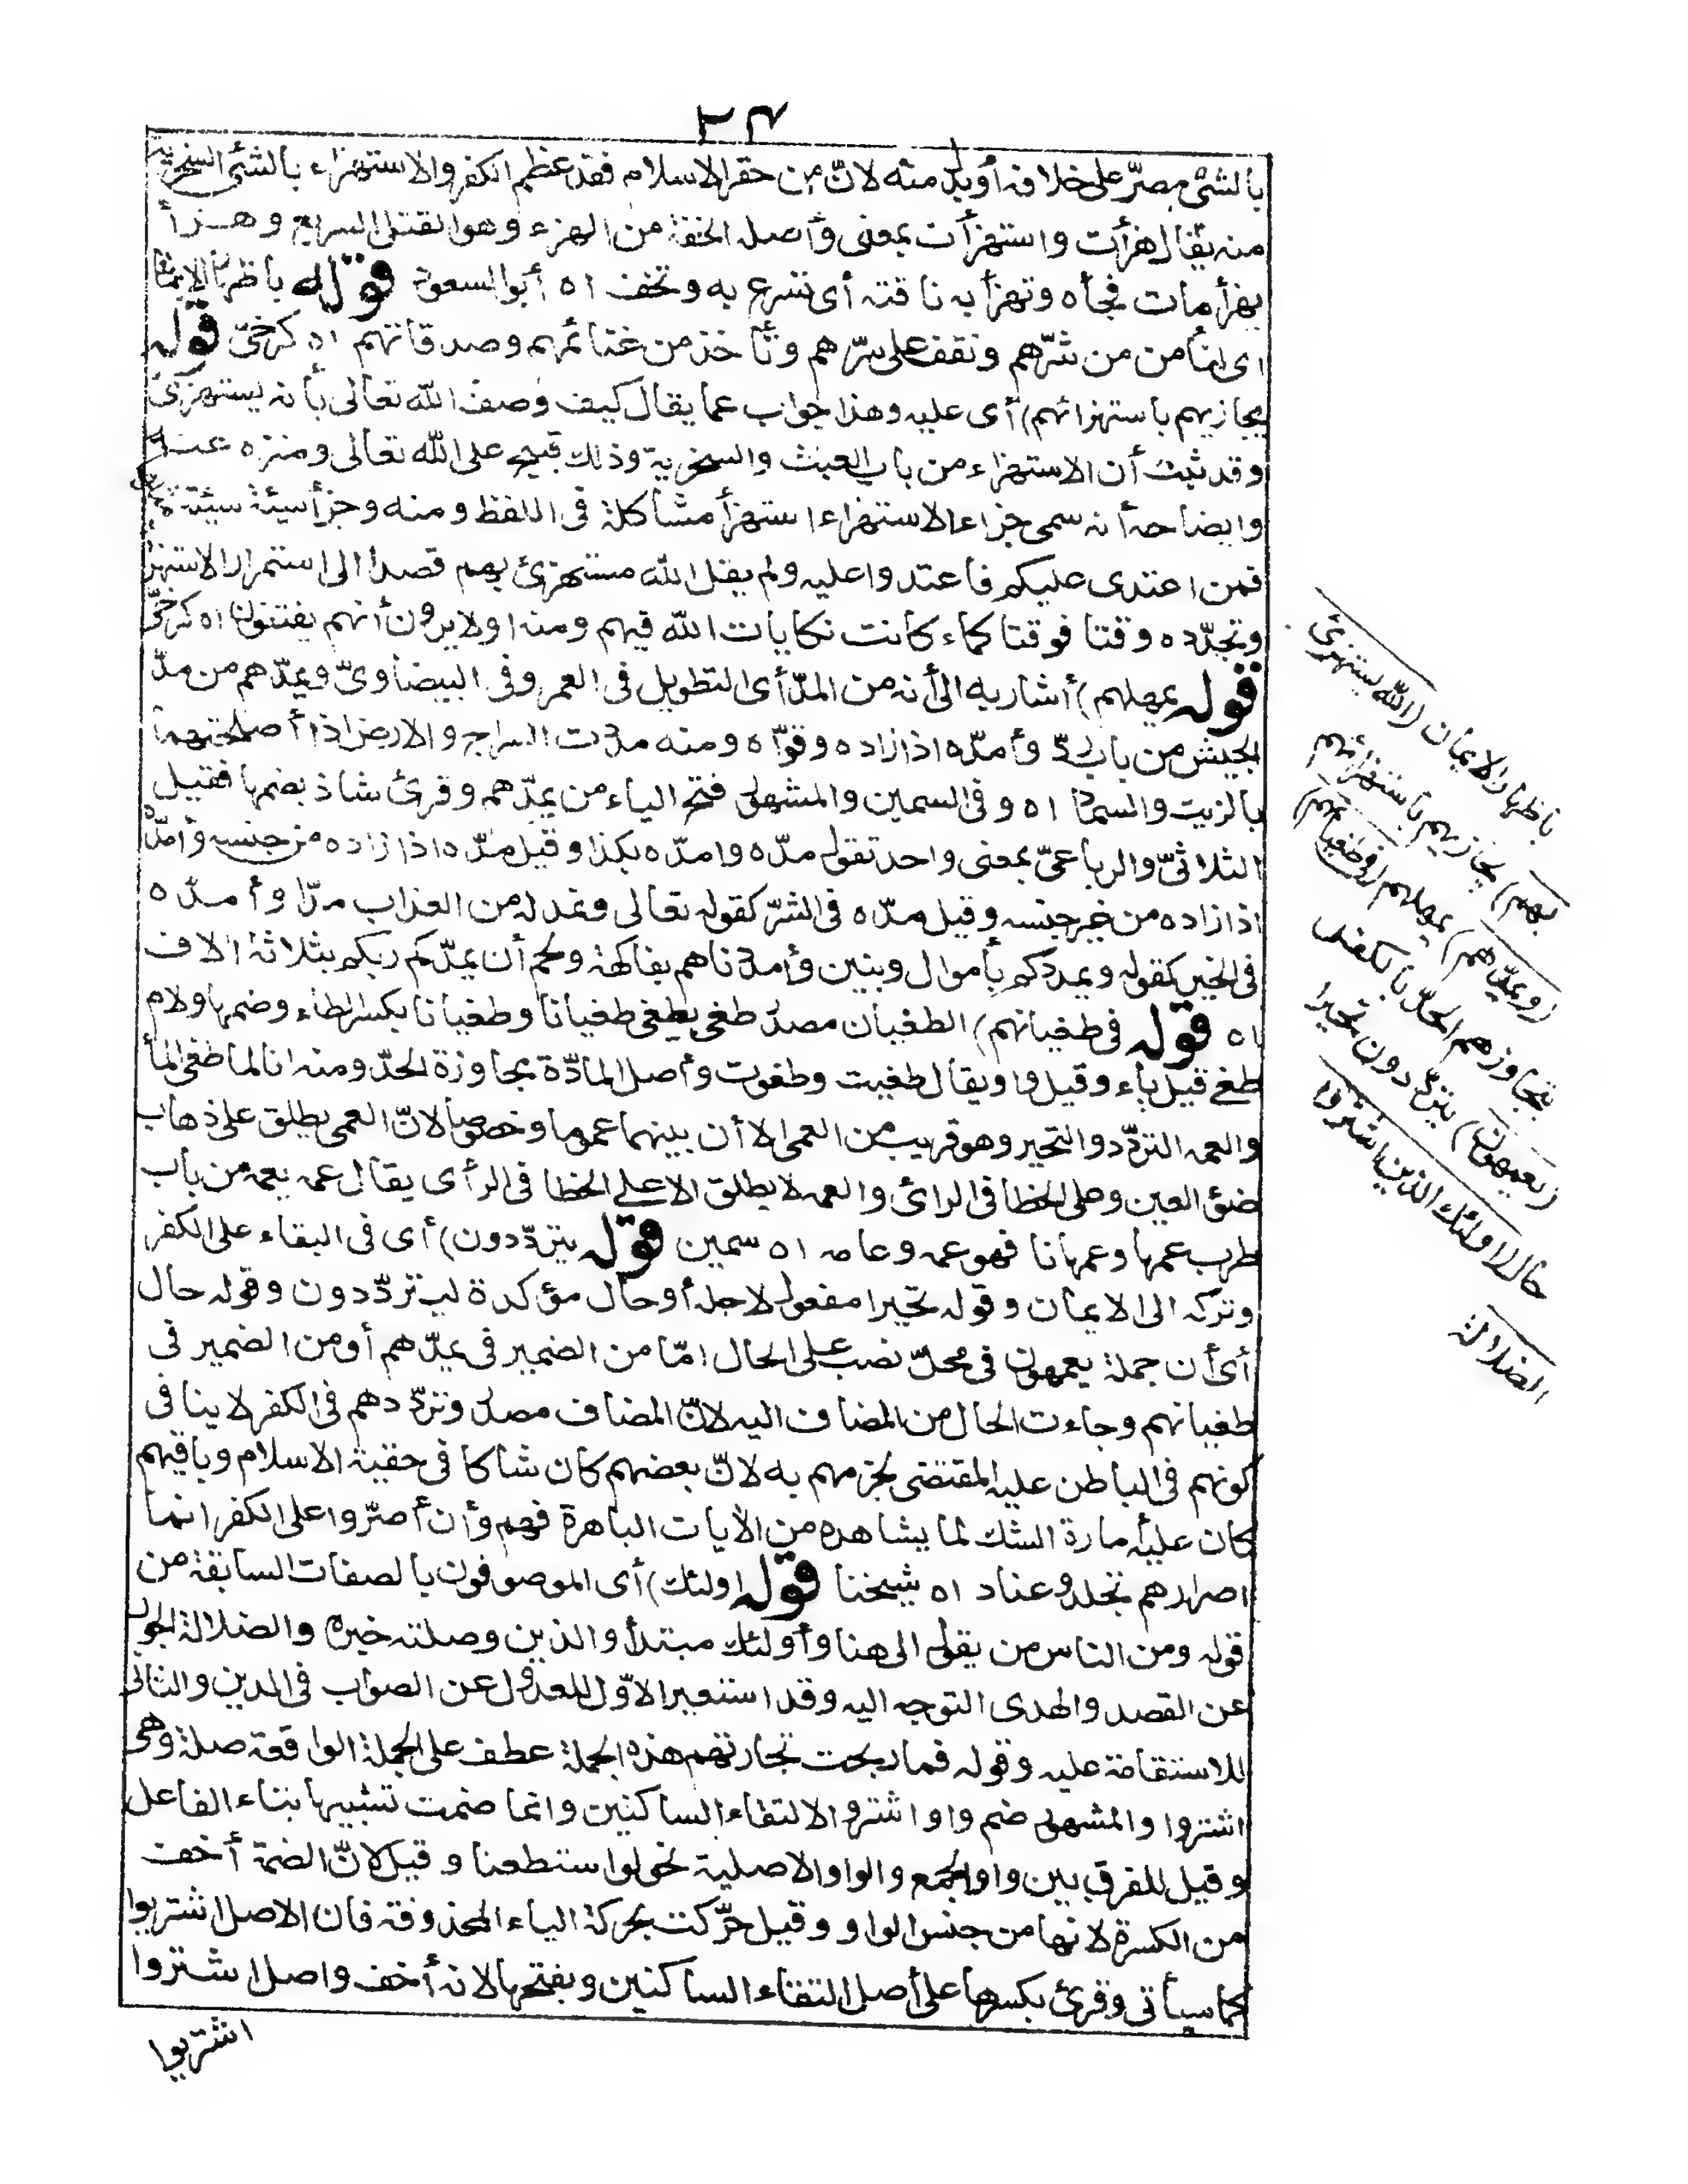 ٢٣
بالشئ مصرّ على خلافه أو بدل منه لانّ من حقر الاسلام فقد عظم الكفر والاستهزاء بالشئ السخرية
منه يقال هزأت واستهزأت بمعنى وأصله الخفة من الهزء وهو القتل السريع وهزأ
يهزأ مات فجأه وتهزأ به ناقته أى تسرع به وتخف اه أبو السعود قوله باظهار الايمان
اى انا من من شرّهم ونقف على سرّهم ونأخذ من غنائمهم وصدقاتهم اه كرخىّ قوله
يجازيهم باستهزائهم) أى عليه وهذا جواب عما يقال كيف وصف الله تعالى بأنه يستهزئ
وقد ثبت أن الاستهزاء من باب العبث والسخرية وذلك قبيح على الله تعالى ومنزه عنه
وايضاحه أنه سمى جزاء الاستهزاء استهزأ مشاكلة فى اللفظ ومنه وجزأ سيئة سيئة مثلها
فمن اعتدى عليكم فاعتدوا عليه ولم يقل الله مستهزئ بهم قصدا الى استمرار الاستهزا
وتجدّده وقتا فوقتا كماء كانت نكايات الله فيهم ومنه اولا يرون أنهم يفتنون اه كرخىّ
قوله يمهلهم) أشار به الى أنه من المدّ أى التطويل فى العمر وفى البيضاوىّ ويمدّهم من مدّ
الجيش من باب ردّ وأمدّه اذا زاده وقوّاه ومنه مددت السراج والارض اذا أصلحتهما
بالزيت والسماد اه وفى السمين والمشهور فتح الياء من يمدّهم وقرئ شاذ بضمها فقيل
الثلاثىّ والرباعىّ بمعنى واحد تقول مدّه وامدّه بكذا وقيل مدّه اذا زاده من جنسه وأمدّه
اذا زاده من غير جنسه وقيل مدّه فى الشرّ كقوله تعالى ونمد له من العذاب مدّا وأمدّه
فى الخير كقوله ويمددكم بأموال وبنين وأمددناهم بفاكهة ولحم أن يمدّكم ربكم بثلاثة الاف
اه قوله فى طغيانهم) الطغيان مصدر طغى يطغى طغيانا وطغيانا بكسر الطاء وضمها ولام
طغى قيل ياء وقيل واو يقال طغيت وطغوت وأصل المادّة مجاوزة الحدّ ومنه انا لما طغى المأ
والعمه التردّد والتحير وهو قريب من العمى الا أن بينهما عموما وخصوصا لانّ العمى يطلق على ذهاب
ضئ العين وعلى الخطا فى الرائ والعمه لا يطلق الا على الخطا فى الرأى يقال عمه يعمه من باب
طرب عمها وعمهانا فهو عمه وعامه اه سمين قوله يتردّدون) أى فى البقاء على الكفر
وتركه الى الايمان وقوله تحيرا مفعول لاجله أو حال مؤكدة ليتردّدون وقوله حال
أى أن جملة يعمهون فى محلّ نصب على الحال امّا من الضمير فى يمدّهم أو من الضمير فى
طغيانهم وجاءت الحال من المضاف اليه لانّ المضاف مصدر وتردّدهم فى الكفر لا ينافى
كونهم فى الباطن عليه المقتضى لجزمهم به لانّ بعضهم كان شاكا فى حقية الاسلام وباقيهم
كان عليه أمارة الشك لما يشاهده من الأيات الباهرة فهم وأن أصرّوا على الكفر انما
اصرارهم تجلد وعناد اه شيخنا قوله اولئك) أى الموصوفون بالصفات السابقة من
قوله ومن الناس من يقول الى هنا وأولئك مبتدأ والذين وصلته خبره والضلالة الجور
عن القصد والهدى التوجه اليه وقد استعير الاوّل للعدول عن الصواب فى الدين والثانى
للاستقامة عليه وقوله فما ربحت تجارتهم هذه الجملة عطف على الجملة الواقعة صلة وهى
اشتروا والمشهور ضم واو اشتروا لالتقاء الساكنين وانما ضمت تشبيها بتاء الفاعل
وقيل للفرق بين واو الجمع والواو الاصلية نحو لو استطعنا وقيل لانّ الضمة أخف
من الكسرة لانها من جنس الواو وقيل حرّكت بحركة الياء المحذوفة فان الاصل اشتريوا
كما سيأتى وقرئ بكسرها على أصل التقاء الساكنين وبفتحها لانه أخف واصل اشتروا
اشتريوا
باظهار الايمان (الله يستهزئ
بهم) يجازيهم باستهزائهم
(ويمدّهم) يمهلهم (فى طغيانهم)
تجاوزهم الحدّ بالكفر
(يعمهون) يتردّدون تحيرا
حال (اولئك الذين اشتروا
الضلالة